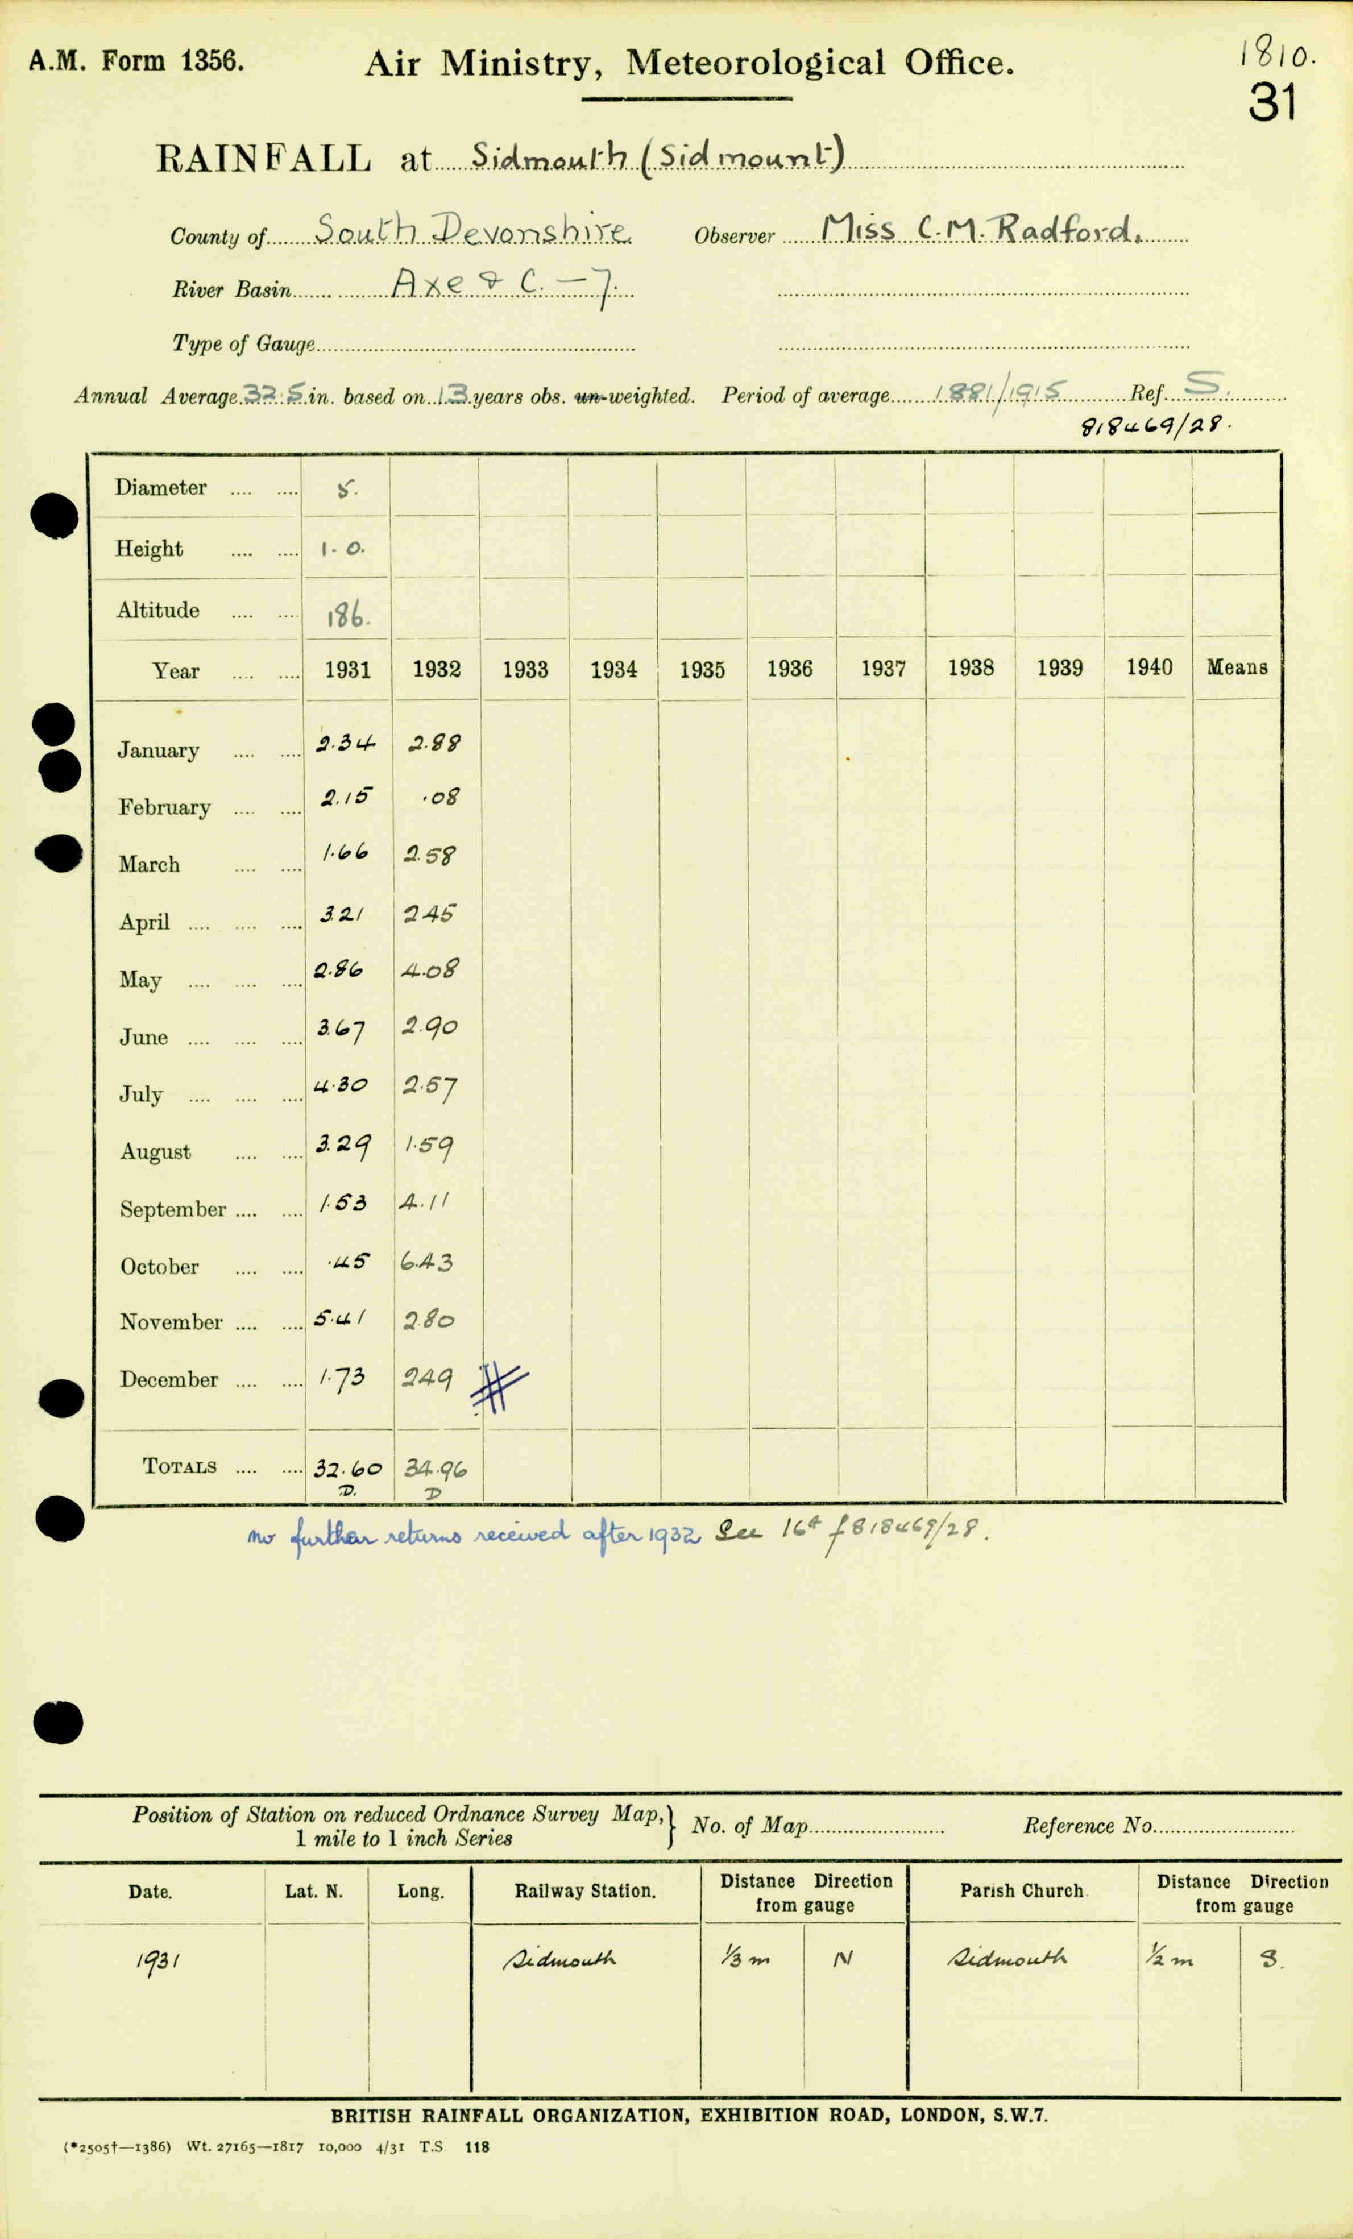 A.M. Form 1356. Air Ministry, Meteorological Office. 1810.
31
RAINFALL at Sidmouth (Sidmount)
County of South Devonshire. Observer Miss C.M. Radford.
River Basin Axe & C. — 7.
Type of Gauge
Annual Average 32.5 in. based on 13 years obs. un-weighted. Period of average 1881/1915 Ref. S.
818469/28.
Diameter 5.
Height 1.0.
Altitude 186.
Year 1931 1932 1933 1934 1935 1936 1937 1938 1939 1940 Means
January 2.34 2.88
February 2.15 .08
March 1.66 2.58
April 3.21 2.45
May 2.86 4.08
June 3.67 2.90
July 4.30 2.57
August 3.29 1.59
September 1.53 4.11
October .45 6.43
November 5.41 2.80
December 1.73 2.49
TOTALS 32.60 34.96
D. D
no further returns received after 1932. See 818469/28.
Position of Station on reduced Ordnance Survey Map, } No. of Map Reference No.
1 mile to 1 inch Series
Date. Lat. N. Long. Railway Station. Distance Direction from gauge Parish Church. Distance Direction from gauge
1931 Sidmouth 1/3 m N Sidmouth 1/2 m S.
BRITISH RAINFALL ORGANIZATION, EXHIBITION ROAD, LONDON, S.W.7.
(*2505†—1386) Wt. 27165—1817 10,000 4/31 T.S 118